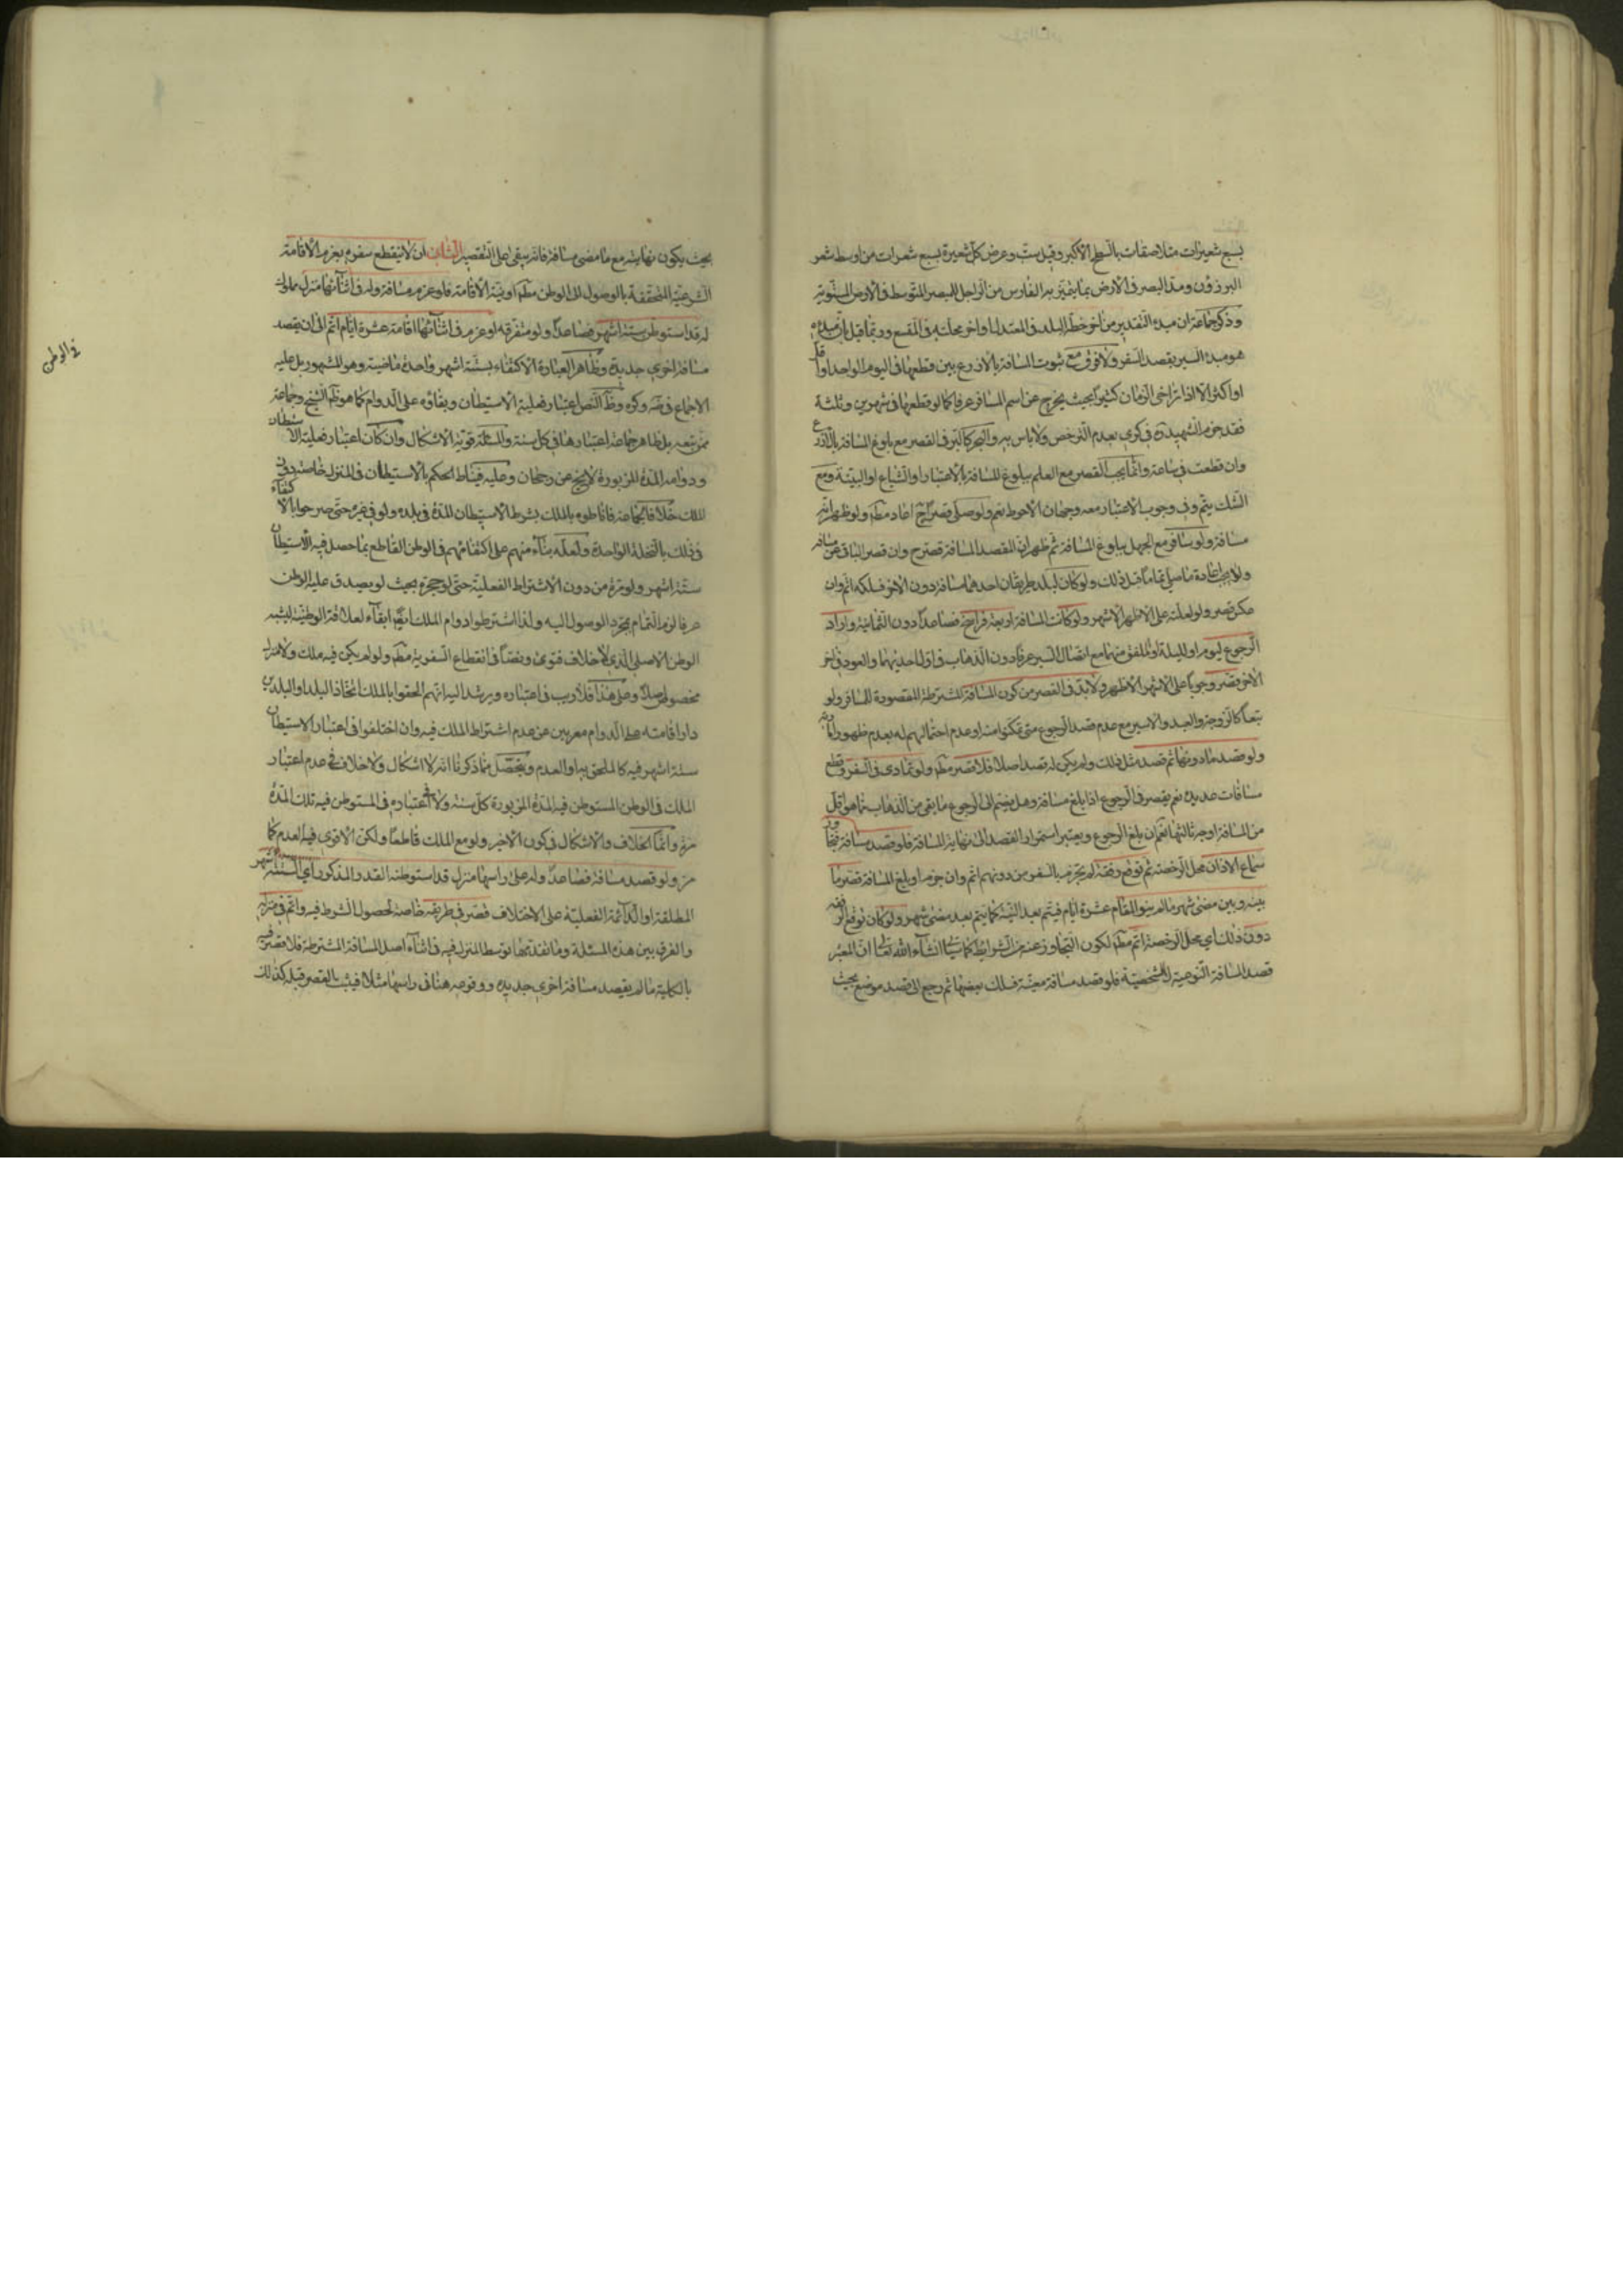 بسبع شعيرات متلاصقات بالسطح الاكبر وقيل ست وعرض كل شعيرة بسبع شعرات من اوسط شعر
البرذون ومد البصر في الارض بما يتميز به الفارس من الراجل للبصر المتوسط في الارض المستوية
وذكر جماعة ان مبدء التقدير من اخر خطة البلد في المعتدل واخر محلته في المتسع وربما قيل بان مبدءه
هو مبدء السير بقصد السفر ولا فرق مع ثبوت المسافة بالاذرع بين قطعها في اليوم الواحد او اقل
او اكثر الا اذا تراخى الزمان كثيرا بحيث يخرج عن اسم المسافر عرفا كما لو قطعها في شهرين وثلثة
فقد جزم الشهيد ره في كرى بعدم الترخص ولا باس به والبحر كالبر في القصر مع بلوغ المسافة بالاذرع
وان قطعت في ساعة وانما يجب القصر مع العلم ببلوغ المسافة بالاعتبار او الشياع او البينة ومع
الشك يتم وفي وجوب الاعتبار معه وجهان الاحوط نعم ولو صلى قصرا ح اعاد مطم ولو ظهر انه
مسافة ولو سافر مع الجهل ببلوغ المسافة ثم ظهر ان المقصد المسافة قصر ح وان قصر الباقي عن مسافة
ولا يجب اعادة ما صلى تماما قبل ذلك ولو كان لبلد طريقان احدهما مسافة دون الاخر فسلكه اتم وان
عكس قصر ولو لعلة على الاظهر الاشهر ولو كانت المسافة اربعة فراسخ فصاعدا دون الثمانية واراد
الرجوع ليومه او لليلة او الملفق منهما مع اتصال السير عرفا دون الذهاب في اول احديهما والعود في اخر
الاخر قصر وجوبا على الاشهر الاظهر ولا بد في القصر من كون المسافة المشترطة المقصودة للمسافر ولو
تبعا كالزوجة والعبد والاسير مع عدم قصد الرجوع متى تمكنوا منه او عدم احتمالهم له بعدم ظهور اماراته
ولو قصد ما دونها ثم قصد مثل ذلك ولم يكن له قصد اصلا فلا قصر مطم ولو تمادى في السفر وقطع
مسافات عديدة نعم يقصر في الرجوع اذا بلغ مسافة وهل يضم الى الرجوع ما بقي من الذهاب مما هو اقل
من المسافة اوجه ثالثها نعم ان بلغ الرجوع ويعتبر استمرار القصد الى نهاية المسافة فلو قصد مسافة فتجاوز
سماع الاذان محل الرخصة ثم توقع رفقة لم يجزم بالسفر من دونهم اتم وان جزم او بلغ المسافة قصر ما
بينه وبين مضى شهر ما لم ينو المقام عشرة ايام فيتم بعد النية كما يتم بعد مضى شهر ولو كان توقع الرفقة
دون ذلك اي محل الرخصة اتم مطم لكون التجاوز عنه من الشرايط كما سيأتي انشاء الله تعالى ثم ان المعتبر
قصد المسافة النوعية لا الشخصية فلو قصد مسافة معينة فسلك بعضها ثم رجع الى قصد موضع بحيث
بحيث يكون نهايته مع ما مضى مسافة فانه يبقى على التقصير الثاني ان لا ينقطع سفره بعزم الاقامة
الشرعية المتحققة بالوصول الى الوطن مطم او بنية الاقامة فلو عزم مسافة وله في اثنائها منزل مملوك
له قد استوطن ستة اشهر فصاعدا ولو متفرقة او عزم في اثنائها اقامة عشرة ايام اتم الى ان يقصد
مسافة اخرى جديدة وظاهر العبارة الاكتفاء بستة اشهر واحدة ماضية وهو المشهور بل عليه
الاجماع في ضه وكره وظ النص اعتبار فعلية الاستيطان وبقاؤه على الدوام كما هو ظم الشيخ وجماعة
ممن تبعه بل ظاهر جماعة اعتبارها في كل سنة والمسئلة قوية الاشكال وان كان اعتبار فعلية الاستيطان
ودوامه المدة المزبورة لا يخ عن رجحان وعليه فمناط الحكم بالاستيطان في المنزل خاصة دون
الملك خلافا لجماعة فاناطوه بالملك بشرط الاستيطان المدة في بلده ولو في غيره حتى صرحوا بالاكتفاء
في ذلك بالنخلة الواحدة ولعله بناء منهم على اكتفائهم في الوطن القاطع بما حصل فيه الاستيطان
ستة اشهر ولو مرة من دون الاشتراط الفعلية حتى لو هجره بحيث لو يصدق عليه الوطن
عرفا لزم التمام بمجرد الوصول اليه ولذا اشترطوا دوام الملك ايضا ابقاء لعلاقة الوطنية ليشبه
الوطن الاصلي الذي لا خلاف فتوى ونصا في انقطاع السفر به مطم ولو لم يكن فيه ملك ولا منزل
مخصوص اصلا وعلى هذا فلا ريب في اعتباره ويرشد اليه انهم الحقوا بالملك اتخاذ البلد او البلدين
دار اقامته على الدوام معربين عن عدم اشتراط الملك فيه وان اختلفوا في اعتبار الاستيطان
ستة اشهر فيه كالملحق به او العدم ويتحصل مما ذكرنا انه لا اشكال ولا خلاف في عدم اعتبار
الملك في الوطن المستوطن فيه المدة المزبورة كل سنة ولا في اعتباره في المستوطن فيه تلك المدة
مرة وانما الخلاف والاشكال في كون الاخير ولو مع الملك قاطعا ولكن الاقوى فيه العدم كما
مر ولو قصد مسافة فصاعدا وله على راسها منزل قد استوطنه القدر المذكور اي الستة اشهر
المطلقة او الدائمة الفعلية على الاختلاف قصر في طريقه خاصة لحصول الشرط فيه واتم في منزله
والفرق بين هذه المسئلة وما تقدمها توسط المنزل فيه في اثناء اصل المسافة المشترطة فلا قصر فيه
بالكلية ما لم يقصد مسافة اخرى جديدة ووقوعه هنا في راسها مثلا فيثبت القصر قبله كذلك
في الوطن